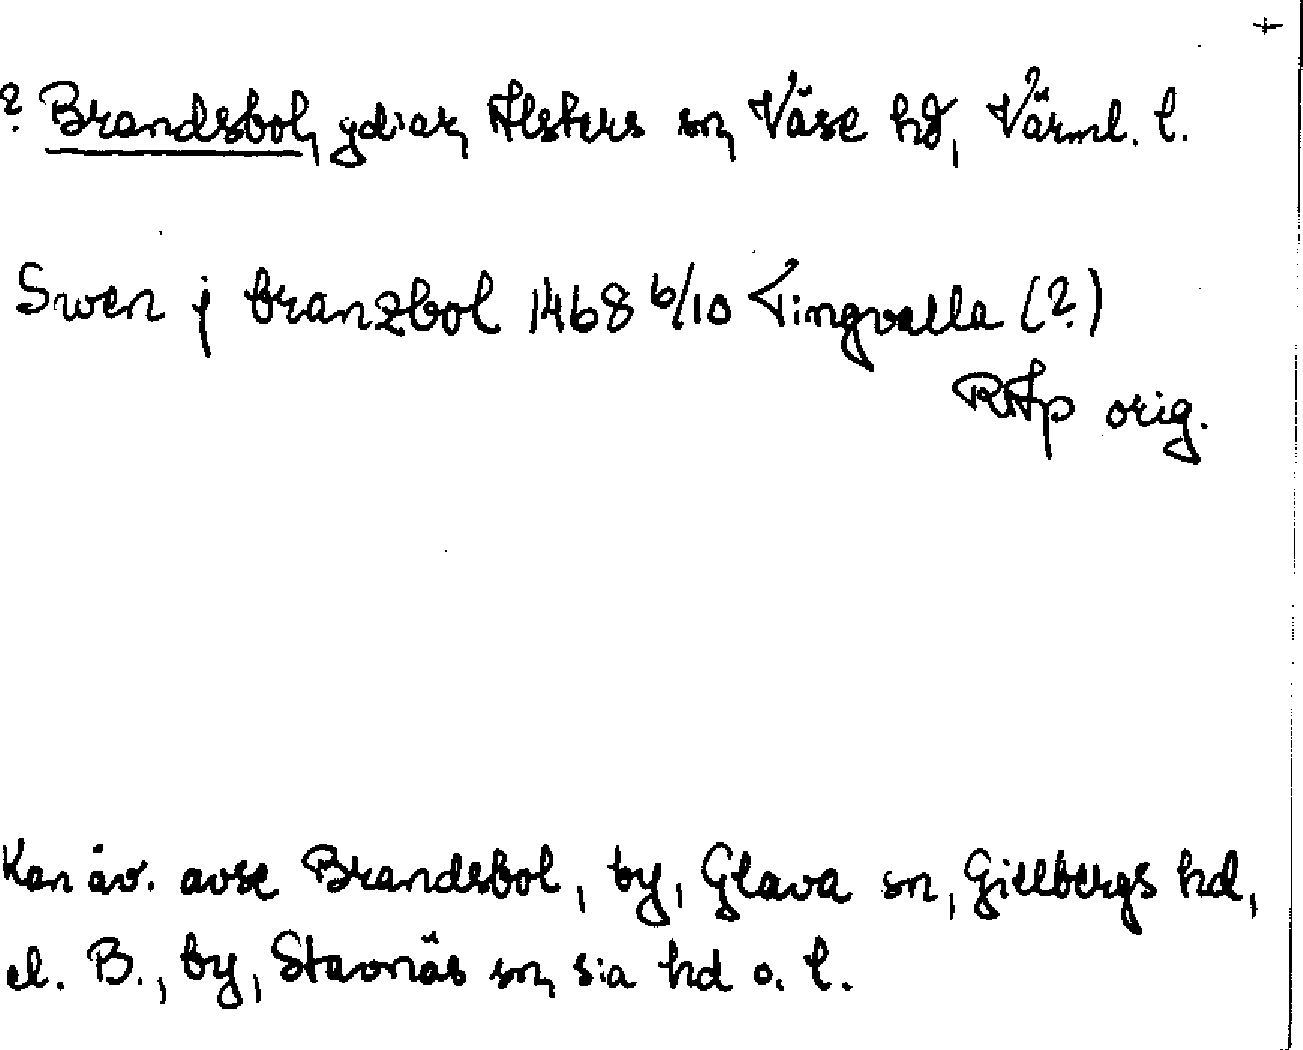 +
? Brandsbol, gdar, Alsters sn, Väse hd, Värml. l.
Swen j branzbol 1468 6/10 Tingvalla (?)
RAp orig.
Kan äv. avse Brandsbol, by, Glava sn, Gillbergs hd,
el. B., by, Stavnäs sn, s:a hd o. l.